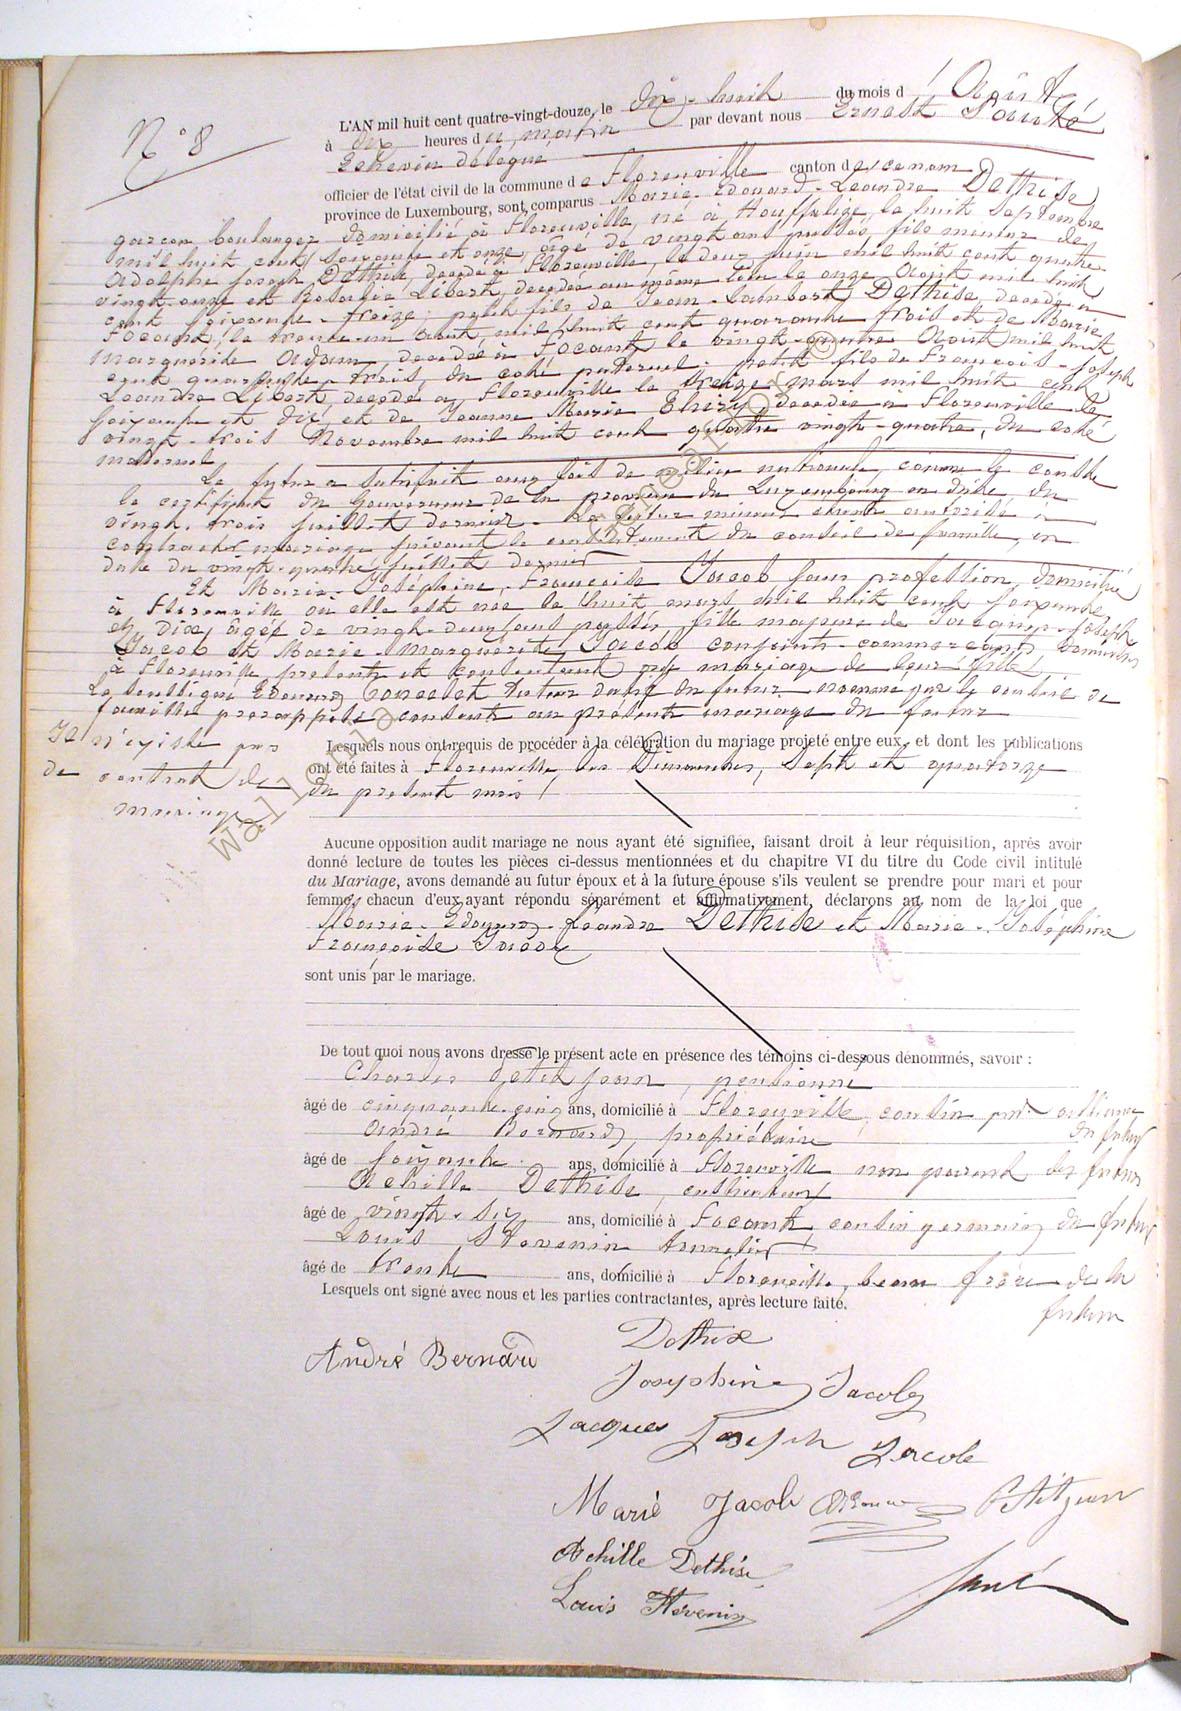 N° 8
L'AN mil huit cent quatre-vingt-douze, le dix-huit du mois d'Août
à dix heures du matin par devant nous Ernest
Echevin délégué
officier de l'état civil de la commune de Florenville canton de ce nom
province de Luxembourg, sont comparus Marie-Edouard-Léandre Dethise,
garçon boulanger domicilié à Florenville, né à Houffalize, le huit Septembre
mil huit cent soixante et onze, âgé de vingt ans passés, fils mineur de
Adolphe Joseph Dethise, décédé à Florenville, le deux juin mil huit cent quatre
vingt-onze et Rosalie Libert, décédée au même lieu le onze Août mil huit
cent soixante-treize; petit fils de Jean-Lambert Dethise, décédé à
Focant, le trente-un Août mil huit cent quarante trois et de Marie
Marguerite Adam, décédée à Focant, le vingt-quatre Août mil huit
cent quarante-trois, du côté paternel; petit-fils de François-Joseph
Léandre Libert décédé à Florenville le treize mars mil huit cent
soixante et dix et de Jeanne Marie Thiry, décédée à Florenville le
vingt-trois Novembre mil huit cent quatre vingt-quatre, du côté
maternel
Le futur a satisfait aux lois de milice nationale, comme le constate
le certificat du Gouverneur de la province du Luxembourg en date du
vingt-trois juillet dernier. Le futur mineur étant autorisé à
contracter mariage suivant le consentement du conseil de famille, en
date du vingt-quatre juillet dernier
Et Marie-Joséphine-Françoise Jacob sans profession, domiciliée
à Florenville où elle est née le huit mars mil huit cent soixante
et dix, âgée de vingt-deux ans passés, fille majeure de Jacques-Joseph
Jacob et Marie-Marguerite Jacob conjoints-commerçants domiciliés
à Florenville, présents et consentant au mariage de leur fille
Edouard tuteur du futur par le conseil de
famille prérappelé consent au présent mariage du futur
Il n'existe pas
de contrat de
mariage
Lesquels nous ont requis de procéder à la célébration du mariage projeté entre eux, et dont les publications
ont été faites à Florenville, les Dimanches, Sept et quatorze
du présent mois
Aucune opposition audit mariage ne nous ayant été signifiée, faisant droit à leur réquisition, après avoir
donné lecture de toutes les pièces ci-dessus mentionnées et du chapitre VI du titre du Code civil intitulé
du Mariage, avons demandé au futur époux et à la future épouse s'ils veulent se prendre pour mari et pour
femme, chacun d'eux ayant répondu séparément et affirmativement, déclarons au nom de la loi que
Marie-Edouard-Léandre Dethise et Marie-Joséphine
Françoise Jacob
sont unis par le mariage.
De tout quoi nous avons dressé le présent acte en présence des témoins ci-dessous dénommés, savoir :
Charles Petitjean, pensionné
âgé de cinquante-cinq ans, domicilié à Florenville, cousin par alliance
du futur
André Bernard, propriétaire
âgé de soixante ans, domicilié à Florenville non parent des futurs
Achille Dethise, cultivateur
âgé de vingt-six ans, domicilié à Focant, cousin germain du futur
Louis Stevenin
âgé de trente ans, domicilié à Florenville, beau frère de la
future
Lesquels ont signé avec nous et les parties contractantes, après lecture faite.
André Bernard
Dethise
Joséphine Jacob
Jacques Joseph Jacob
Marie Jacob
Petitjean
Achille Dethise
Louis Stevenin